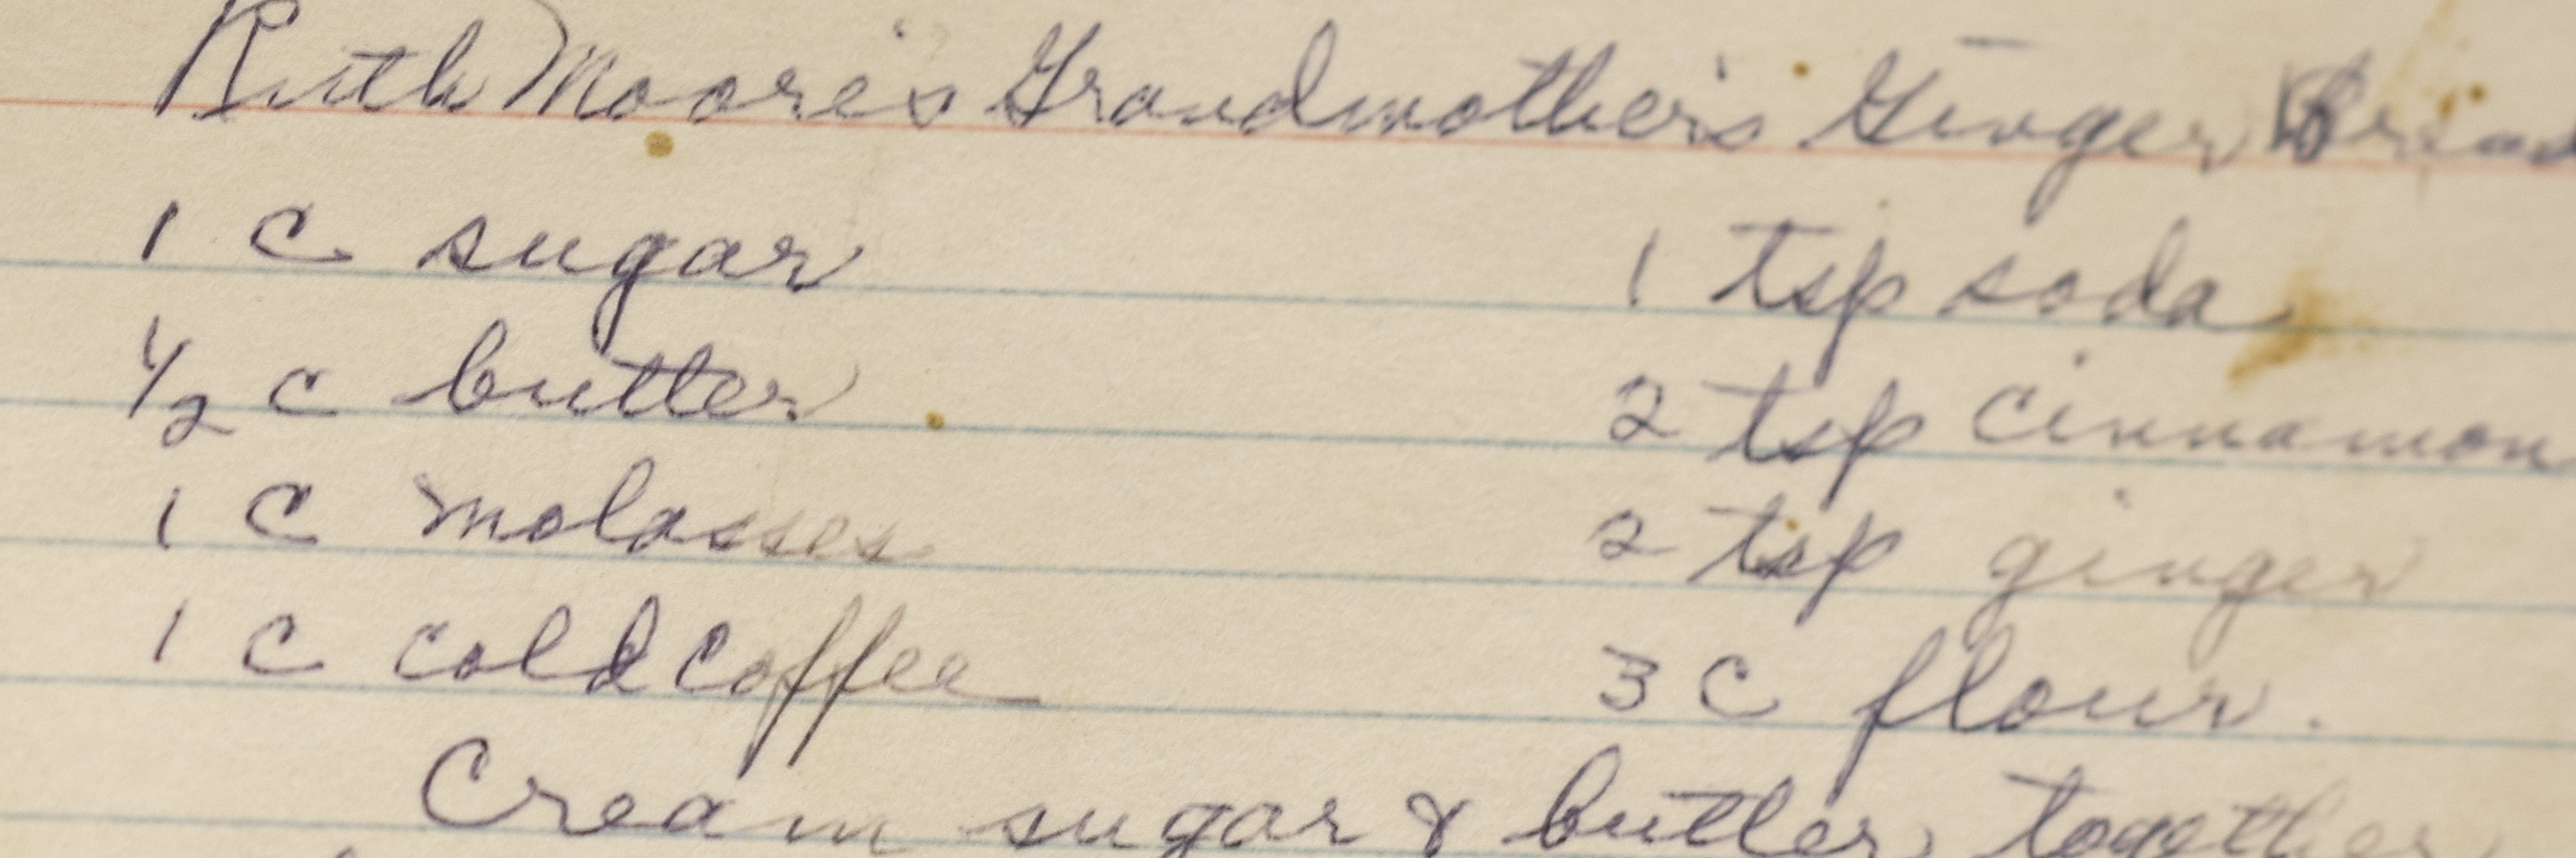 Ruth Moore's Grandmother's Ginger Bread
1 c sugar
1/2 c butter
1 c molasses
1 c cold coffee
1 tsp soda
2 tsp cinnamon
2 tsp ginger
3 c flour.
Cream sugar & butter together